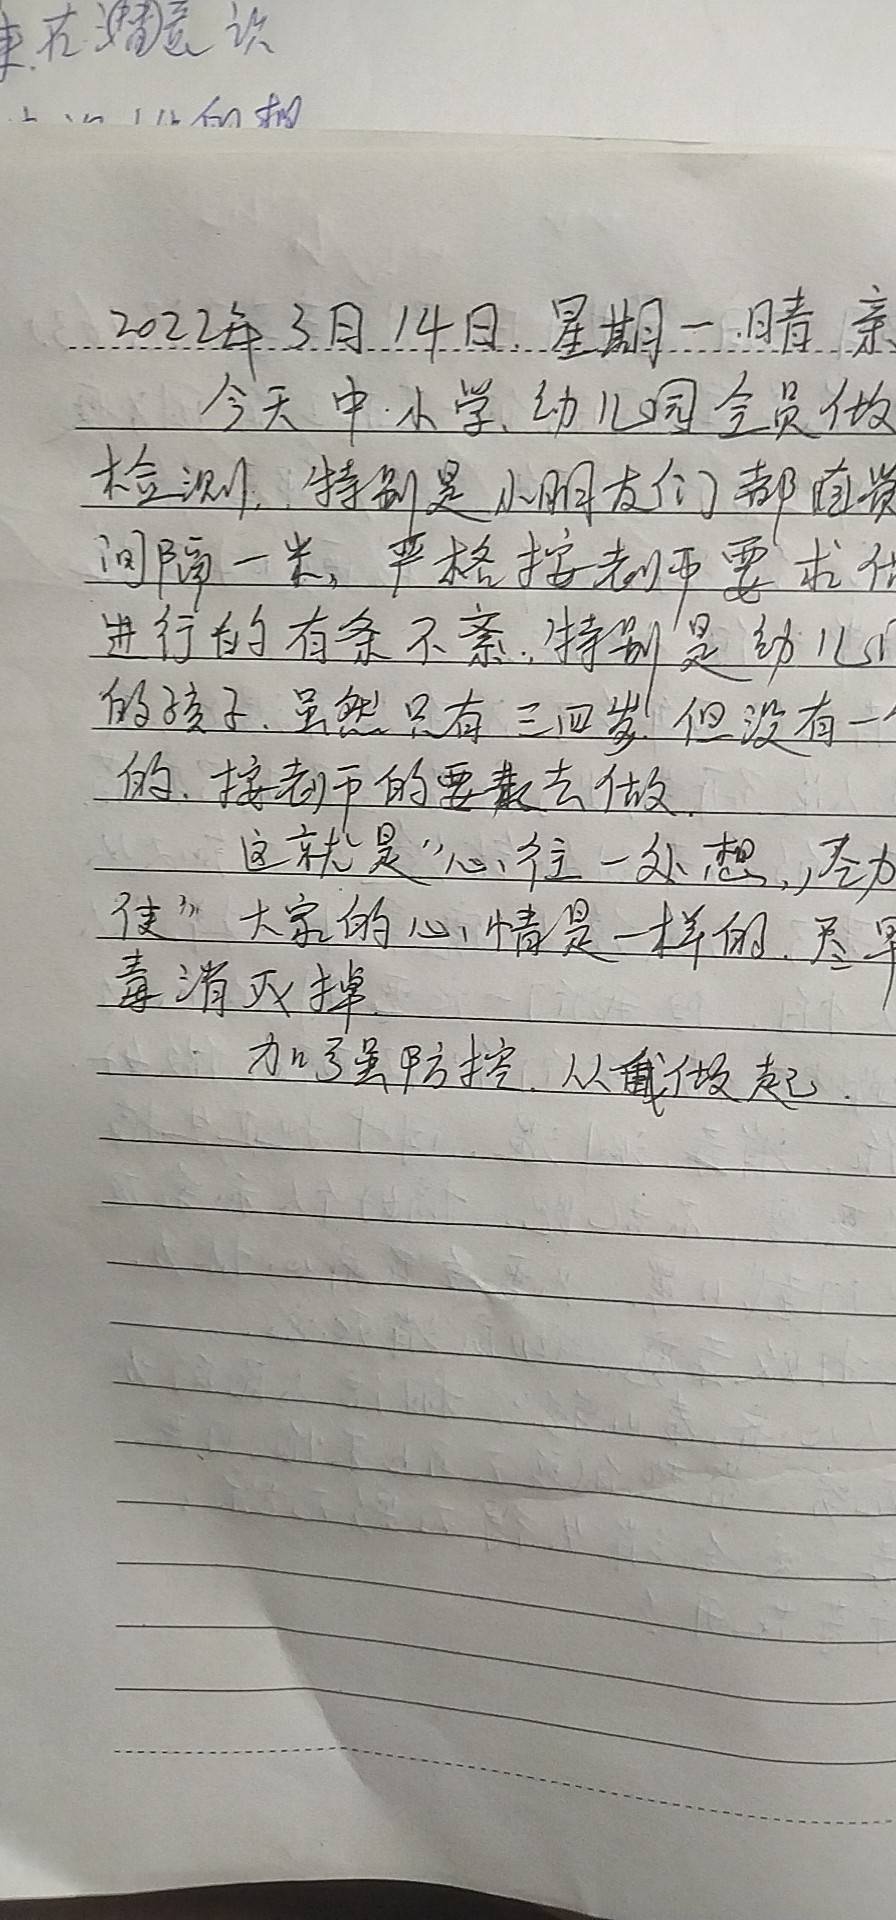 在潜意识
的想
2022年3月14日.星期一.晴 亲
今天中.小学.幼儿园全员做
检测.特别是小朋友们都自觉
间隔一米,严格按老师要求做
进行的有条不紊.特别是幼儿园
的孩子.虽然只有三四岁.但没有一个
的.按老师的要求去做.
这就是"心往一处想,力
使"大家的心情是一样的.尽早
毒消灭掉.
加强防控.从我做起.